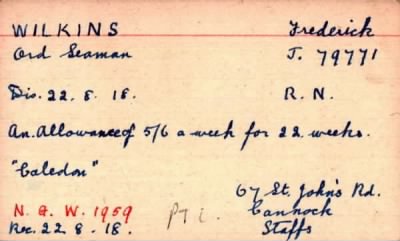 WILKINS Frederick
Ord Seaman J. 79771
Dis. 22. 8. 18. R. N.
An. Allowance of 5/6 a week for 22 weeks.
"Caledon"
67 St. John's Rd.
N. & W. 1959 Cannock
Rec. 22. 8. 18. Staffs